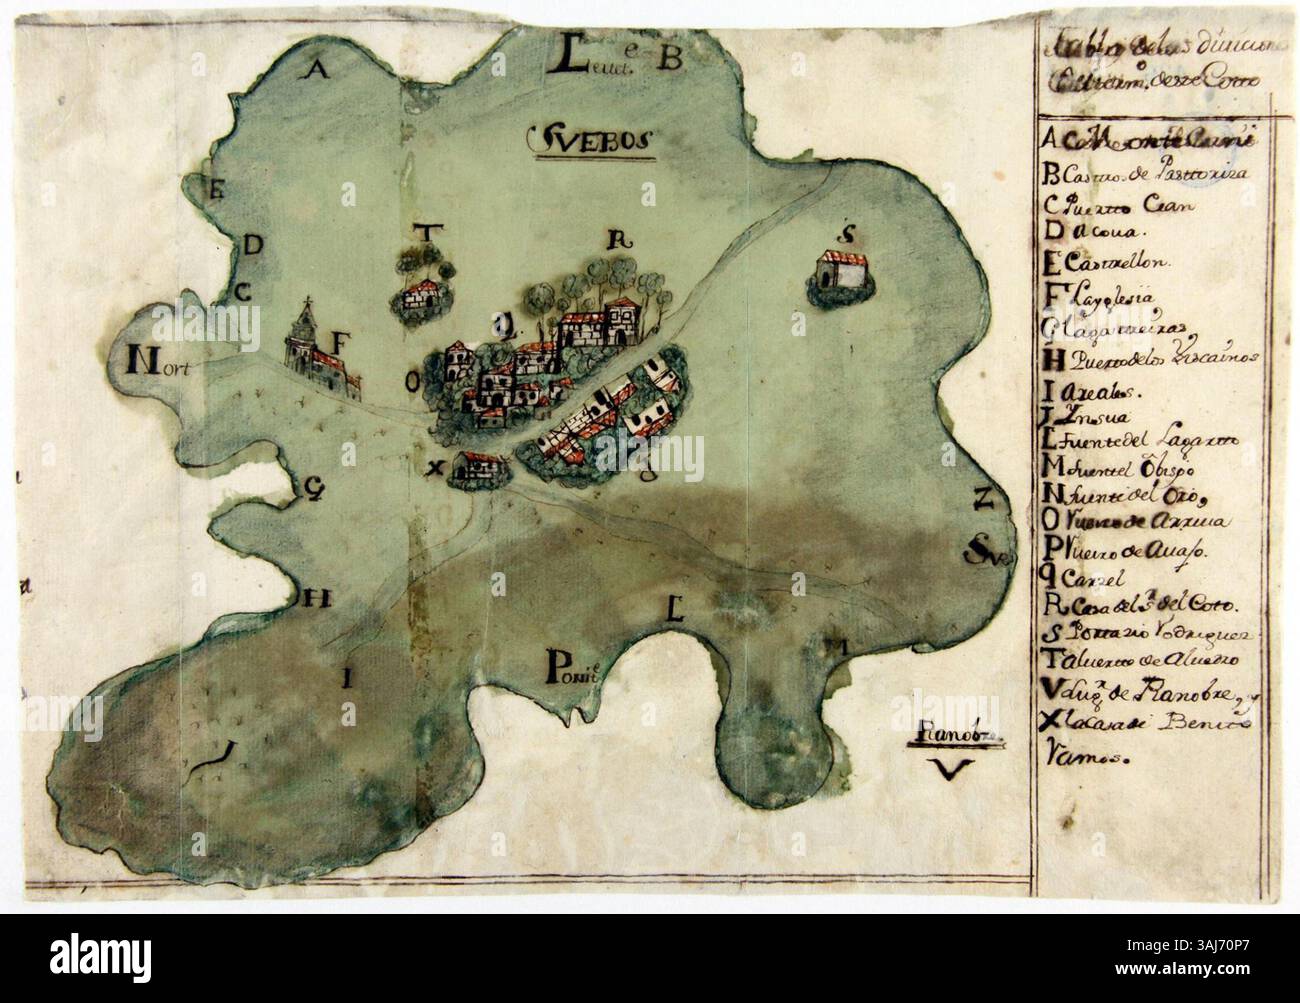 A
Levtᵉ B
SVEBOS
E
D
C
T
R
S
Nort
F
Q
O
X
G
Z
Sur
H
L
I
Ponᵗᵉ
M
J
Ranobre
V
Tabla de las diuiciones
deste Cotto
A
B Castro de Pasttoriza
C Puertto Cean
D acoua.
E Casttrellon.
F Layglesia
G lagartteiras
H Puertto de los Viscainos
I areales.
J Ynsua
L Fuente del Lagartto
M fuentel Obispo
N fuente del Oro,
O de Arriua
P Vueiro de Auajo.
q Carzel
R Casa del Sʳ del Coto.
S Rodriguez
T aluertto de Aluedro
V Lugʳ de Ranobre, y
X la casa di Benito
Ramos.
alamy
Image ID: 3AJ70P7
www.alamy.com